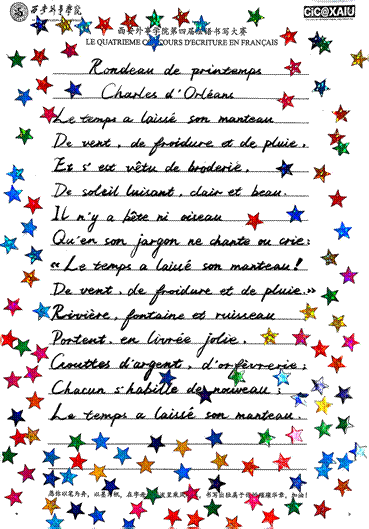 西安外事学院
CiC@XAIU
西安外事学院第四届法语书写大赛
LE QUATRIEME CONCOURS D'ECRITURE EN FRANÇAIS
Rondeau de printemps
Charles d'Orléans
Le temps a laissé son manteau
De vent, de froidure et de pluie,
Et s'est vêtu de broderie,
De soleil luisant, clair et beau.
Il n'y a bête ni oiseau
Qu'en son jargon ne chante ou crie:
«Le temps a laissé son manteau!
De vent, de froidure et de pluie.»
Rivière, fontaine et ruisseau
Portent, en livrée jolie,
Gouttes d'argent, d'orfèvrerie;
Chacun s'habille de nouveau:
Le temps a laissé son manteau.
愿你以笔为舟，以墨为帆，